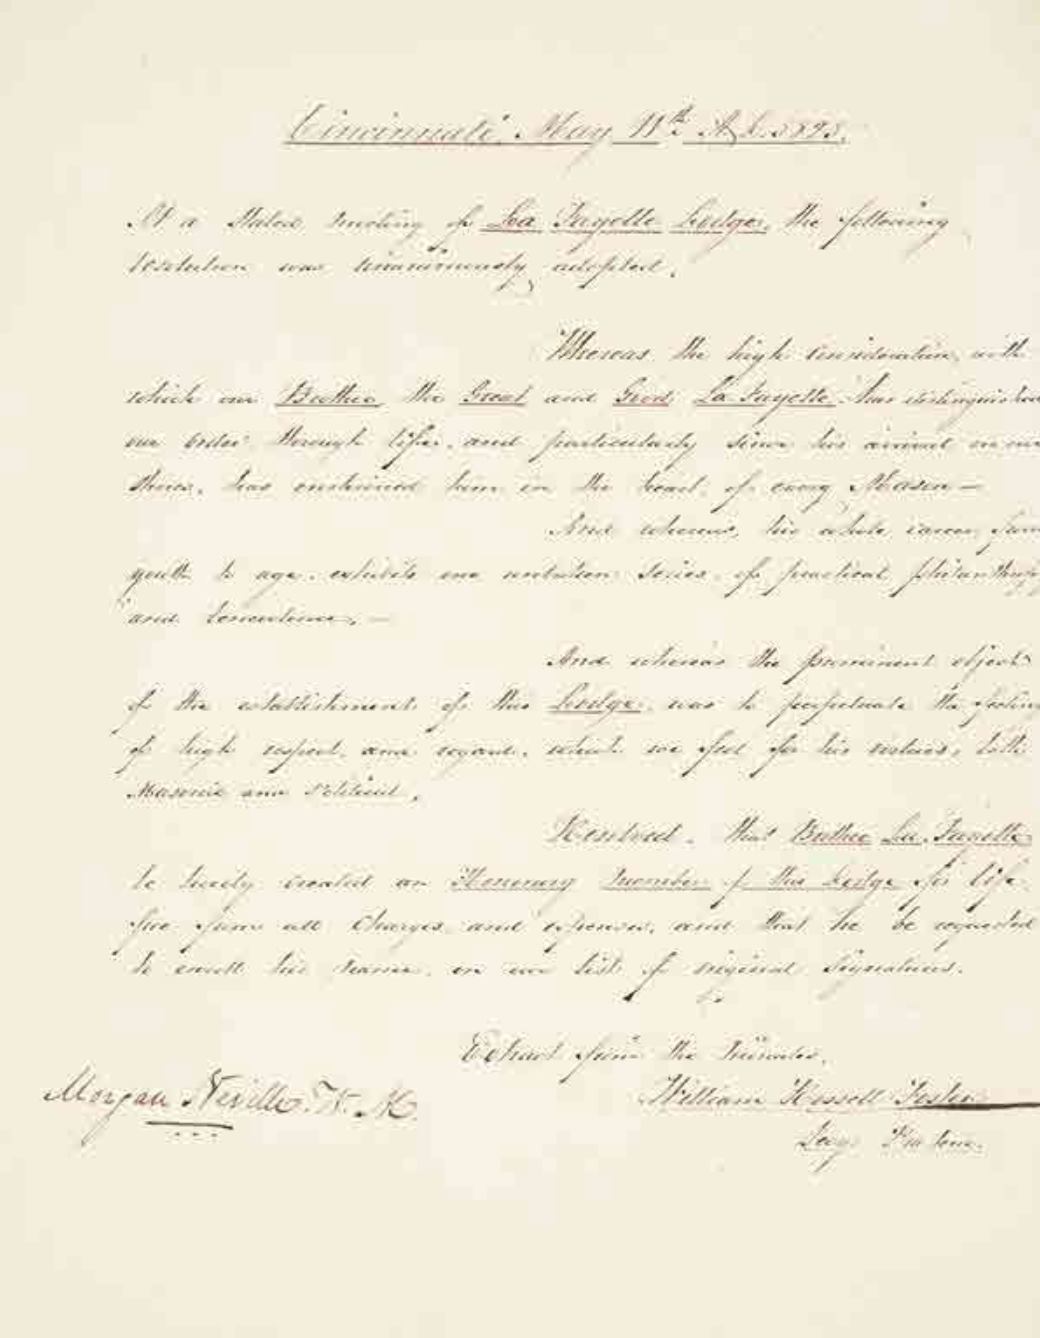 Cincinnati. May 11th A.L. 5825.
At a Stated meeting of La Fayette Lodge, the following
resolution was unanimously adopted.
Whereas the high consideration with
which our Brother the Great and Good La Fayette has distinguished
our order through life, and particularly since his arrival on our
shores, has enshrined him in the heart of every Mason —
And whereas, his whole career from
youth to age, exhibits one series of practical philanthropy
and —
And whereas the prominent object
of the establishment of this Lodge, was to perpetuate the feeling
of high respect and regard, which we feel for his virtues, both
Masonic and Political.
Resolved, that Brother La Fayette
be hereby created an Honorary member of this Lodge for life
free from all Charges and expenses, and that he be requested
to enroll his name, on our list of original Signatures.
Extract from the Minutes.
Morgan Neville W. M.
William Foster
Secy. Pro tem.